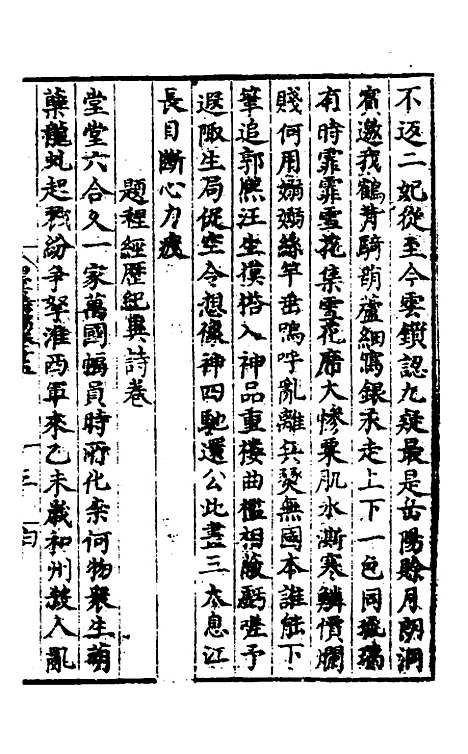 不返二妃從至今雲鎖認九疑最是岳陽賒月朗洞
賓邀我鶴背騎葫蘆細瀉銀禾走上下一色同玻璃
有時霏霏雪花集雪花席大慘粟肌水澌寒鱗價爛
賤何用嫋嫋絲竿垂嗚呼亂離兵燹無國本誰能下
筆追郭熙汪生摸搭入神品重樓曲檻相蔽虧嗟予
遐陬生局促空令想像神四馳還公此畫三太息江
長目斷心力疲
題程經歷紀興詩卷
堂堂六合久一家萬國幅員時所化柰何物衆生萌
蘖龍虬起我紛爭拏淮西軍來乙未歲和州殺入亂